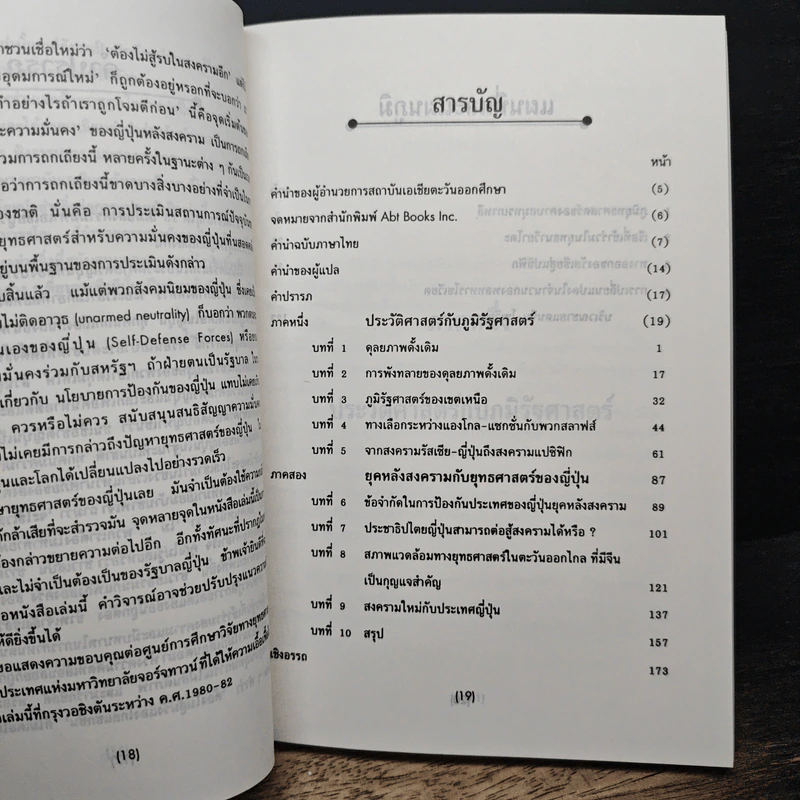 ชวนเชื่อใหม่ว่า 'ต้องไม่สู้รบในสงครามอีก'
อุดมการณ์ใหม่' ก็ถูกต้องอยู่หรอกที่จะบอกว่า
ทำอย่างไรถ้าเราถูกโจมตีก่อน' นี้คือจุดเริ่มต้น
ะความมั่นคง' ของญี่ปุ่นหลังสงคราม เป็นการถก
วมการถกเถียงนี้ หลายครั้งในฐานะต่าง ๆ กัน
อว่าการถกเถียงนี้ขาดบางสิ่งบางอย่างที่จำเป็น
องชาติ นั่นคือ การประเมินสถานการณ์ปัจจุบัน
ยุทธศาสตร์สำหรับความมั่นคงของญี่ปุ่นที่สอด
อยู่บนพื้นฐานของการประเมินดังกล่าว
บสิ้นแล้ว แม้แต่พวกสังคมนิยมของญี่ปุ่น ซึ่ง
ไม่ติดอาวุธ (unarmed neutrality) ก็บอกว่า พวก
นเองของญี่ปุ่น (Self-Defense Forces) หรือ
มั่นคงร่วมกับสหรัฐฯ ถ้าฝ่ายตนเป็นรัฐบาล
เกี่ยวกับ นโยบายการป้องกันของญี่ปุ่น แทบไม่เคย
ควรหรือไม่ควร สนับสนุนสนธิสัญญาความมั่น
ไม่เคยมีการกล่าวถึงปัญหายุทธศาสตร์ของญี่ปุ่น
นและโลกได้เปลี่ยนแปลงไปอย่างรวดเร็ว
ษายุทธศาสตร์ของญี่ปุ่นเลย มันจำเป็นต้องใช้ความ
ล้าเสียที่จะสำรวจมัน จุดหลายจุดในหนังสือเล่มนี้
องกล่าวขยายความต่อไปอีก อีกทั้งทัศนะที่ปรากฏ
และไม่จำเป็นต้องเป็นของรัฐบาลญี่ปุ่น ข้าพเจ้ายินดี
อหนังสือเล่มนี้ คำวิจารณ์อาจช่วยปรับปรุงแนวความ
ห้ดียิ่งขึ้นได้
ขอแสดงความขอบคุณต่อศูนย์การศึกษาวิจัยทางยุทธ
ประเทศแห่งมหาวิทยาลัยจอร์จทาวน์ ที่ได้ให้ความเอื้อ
เล่มนี้ที่กรุงวอชิงตันระหว่าง ค.ศ.1980-82
(18)
สารบัญ
หน้า
คำนำของผู้อำนวยการสถาบันเอเชียตะวันออกศึกษา (5)
จดหมายจากสำนักพิมพ์ Abt Books Inc. (6)
คำนำฉบับภาษาไทย (7)
คำนำของผู้แปล (14)
คำปรารภ (17)
ภาคหนึ่ง ประวัติศาสตร์กับภูมิรัฐศาสตร์ (19)
บทที่ 1 ดุลยภาพดั้งเดิม 1
บทที่ 2 การพังทลายของดุลยภาพดั้งเดิม 17
บทที่ 3 ภูมิรัฐศาสตร์ของเขตเหนือ 32
บทที่ 4 ทางเลือกระหว่างแองโกล-แซกซั่นกับพวกสลาฟส์ 44
บทที่ 5 จากสงครามรัสเซีย-ญี่ปุ่นถึงสงครามแปซิฟิก 61
ภาคสอง ยุคหลังสงครามกับยุทธศาสตร์ของญี่ปุ่น 87
บทที่ 6 ข้อจำกัดในการป้องกันประเทศของญี่ปุ่นยุคหลังสงคราม 89
บทที่ 7 ประชาธิปไตยญี่ปุ่นสามารถต่อสู้สงครามได้หรือ ? 101
บทที่ 8 สภาพแวดล้อมทางยุทธศาสตร์ในตะวันออกไกล ที่มีจีน
เป็นกุญแจสำคัญ 121
บทที่ 9 สงครามใหม่กับประเทศญี่ปุ่น 137
บทที่ 10 สรุป 157
เชิงอรรถ 173
(19)